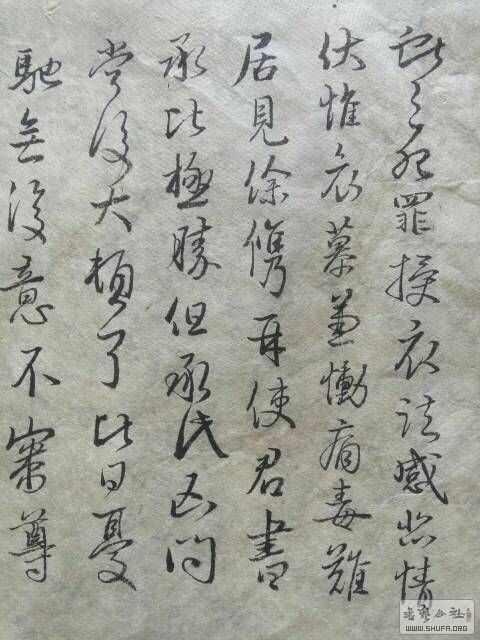 獻之死罪授衣諸感悲情
伏惟哀慕兼慟痛毒難
居見徐儁再使君書
承比極勝但承氏凶問
當復大頓了比日憂
馳無復意不審尊
书艺公社
WWW.SHUFA.ORG